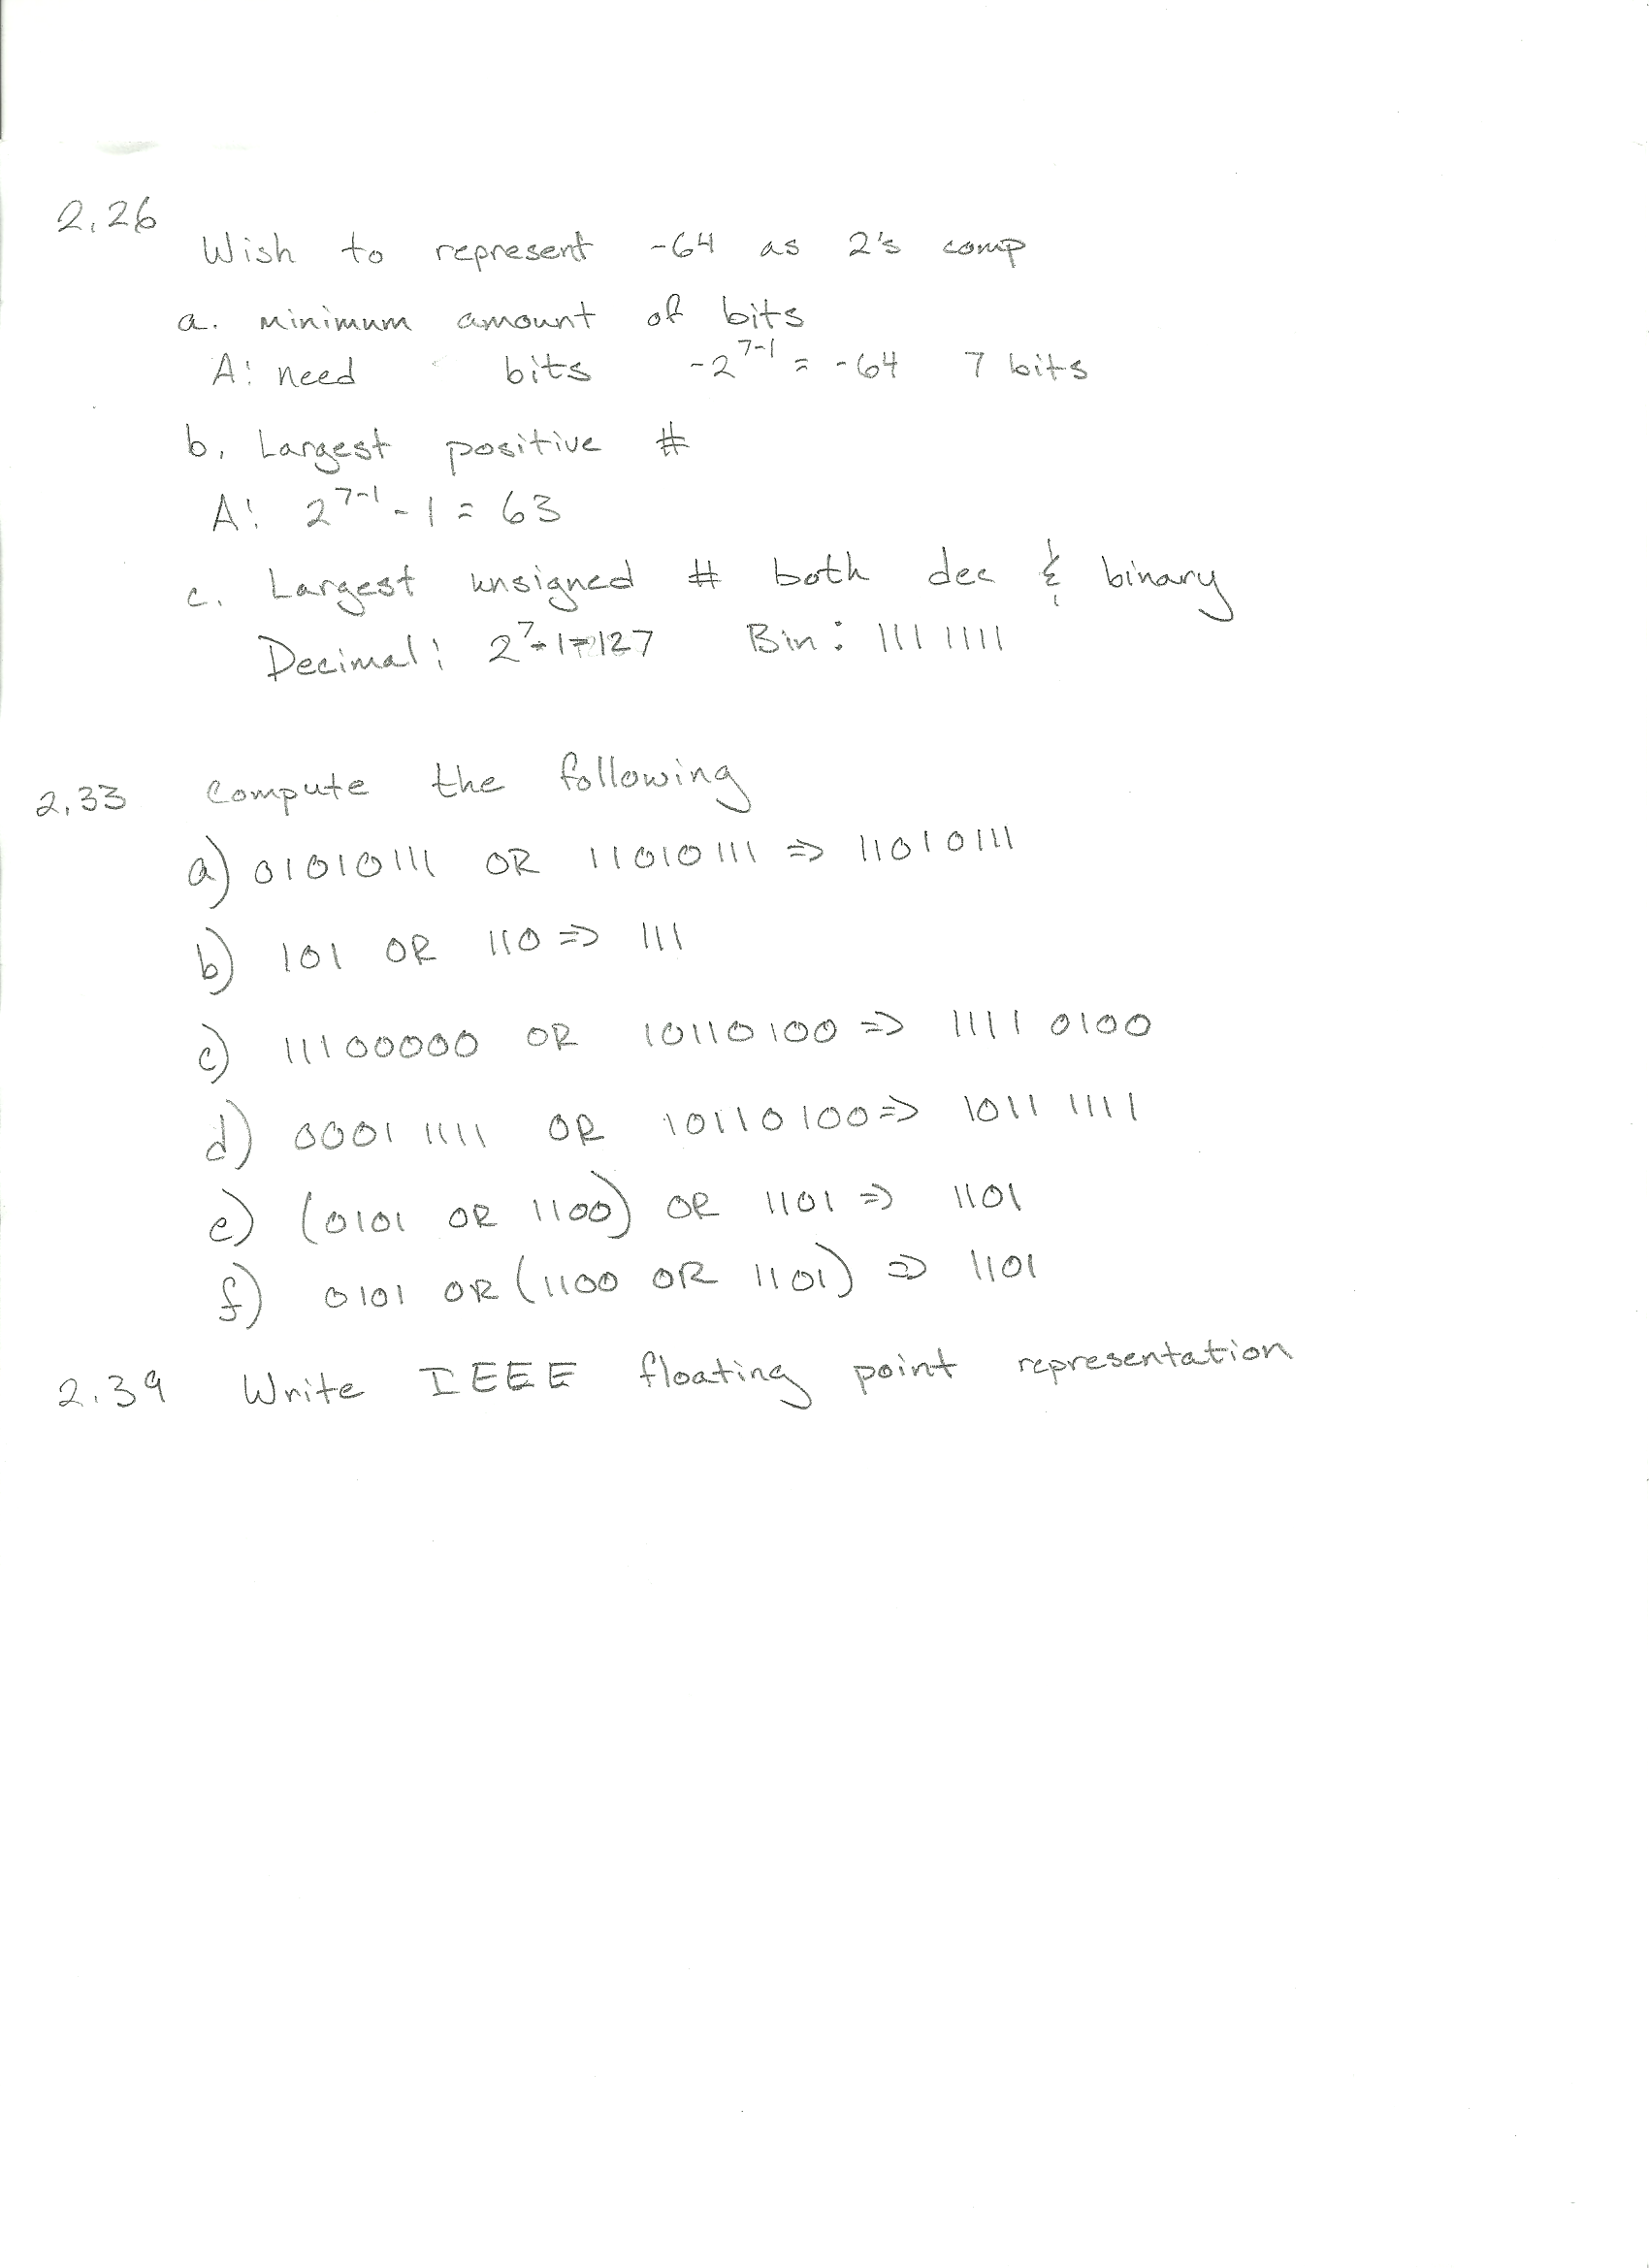 2.26
Wish to represent -64 as 2's comp
a. minimum amount of bits
A: need bits -2^7-1 = -64 7 bits
b. Largest positive #
A: 2^7-1 - 1 = 63
c. Largest unsigned # both dec & binary
Decimal: 2^7-1=127 Bin: 111 1111
2.33 Compute the following
a) 01010111 OR 11010111 => 11010111
b) 101 OR 110 => 111
c) 11100000 OR 10110100 => 1111 0100
d) 0001 1111 OR 10110100 => 1011 1111
e) (0101 OR 1100) OR 1101 => 1101
f) 0101 OR (1100 OR 1101) => 1101
2.39 Write IEEE floating point representation